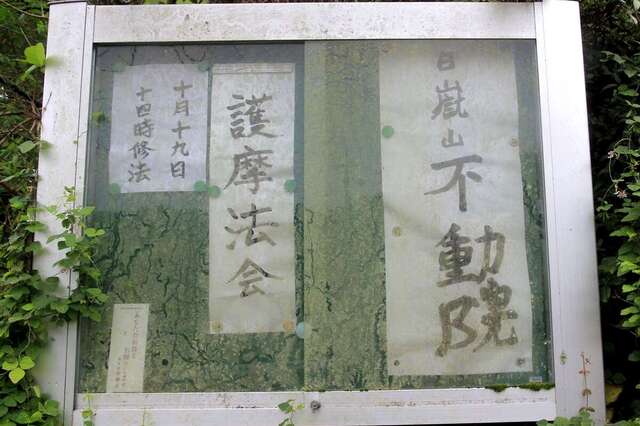 日嵐山不動院
護摩法会
十月十九日
十四時修法